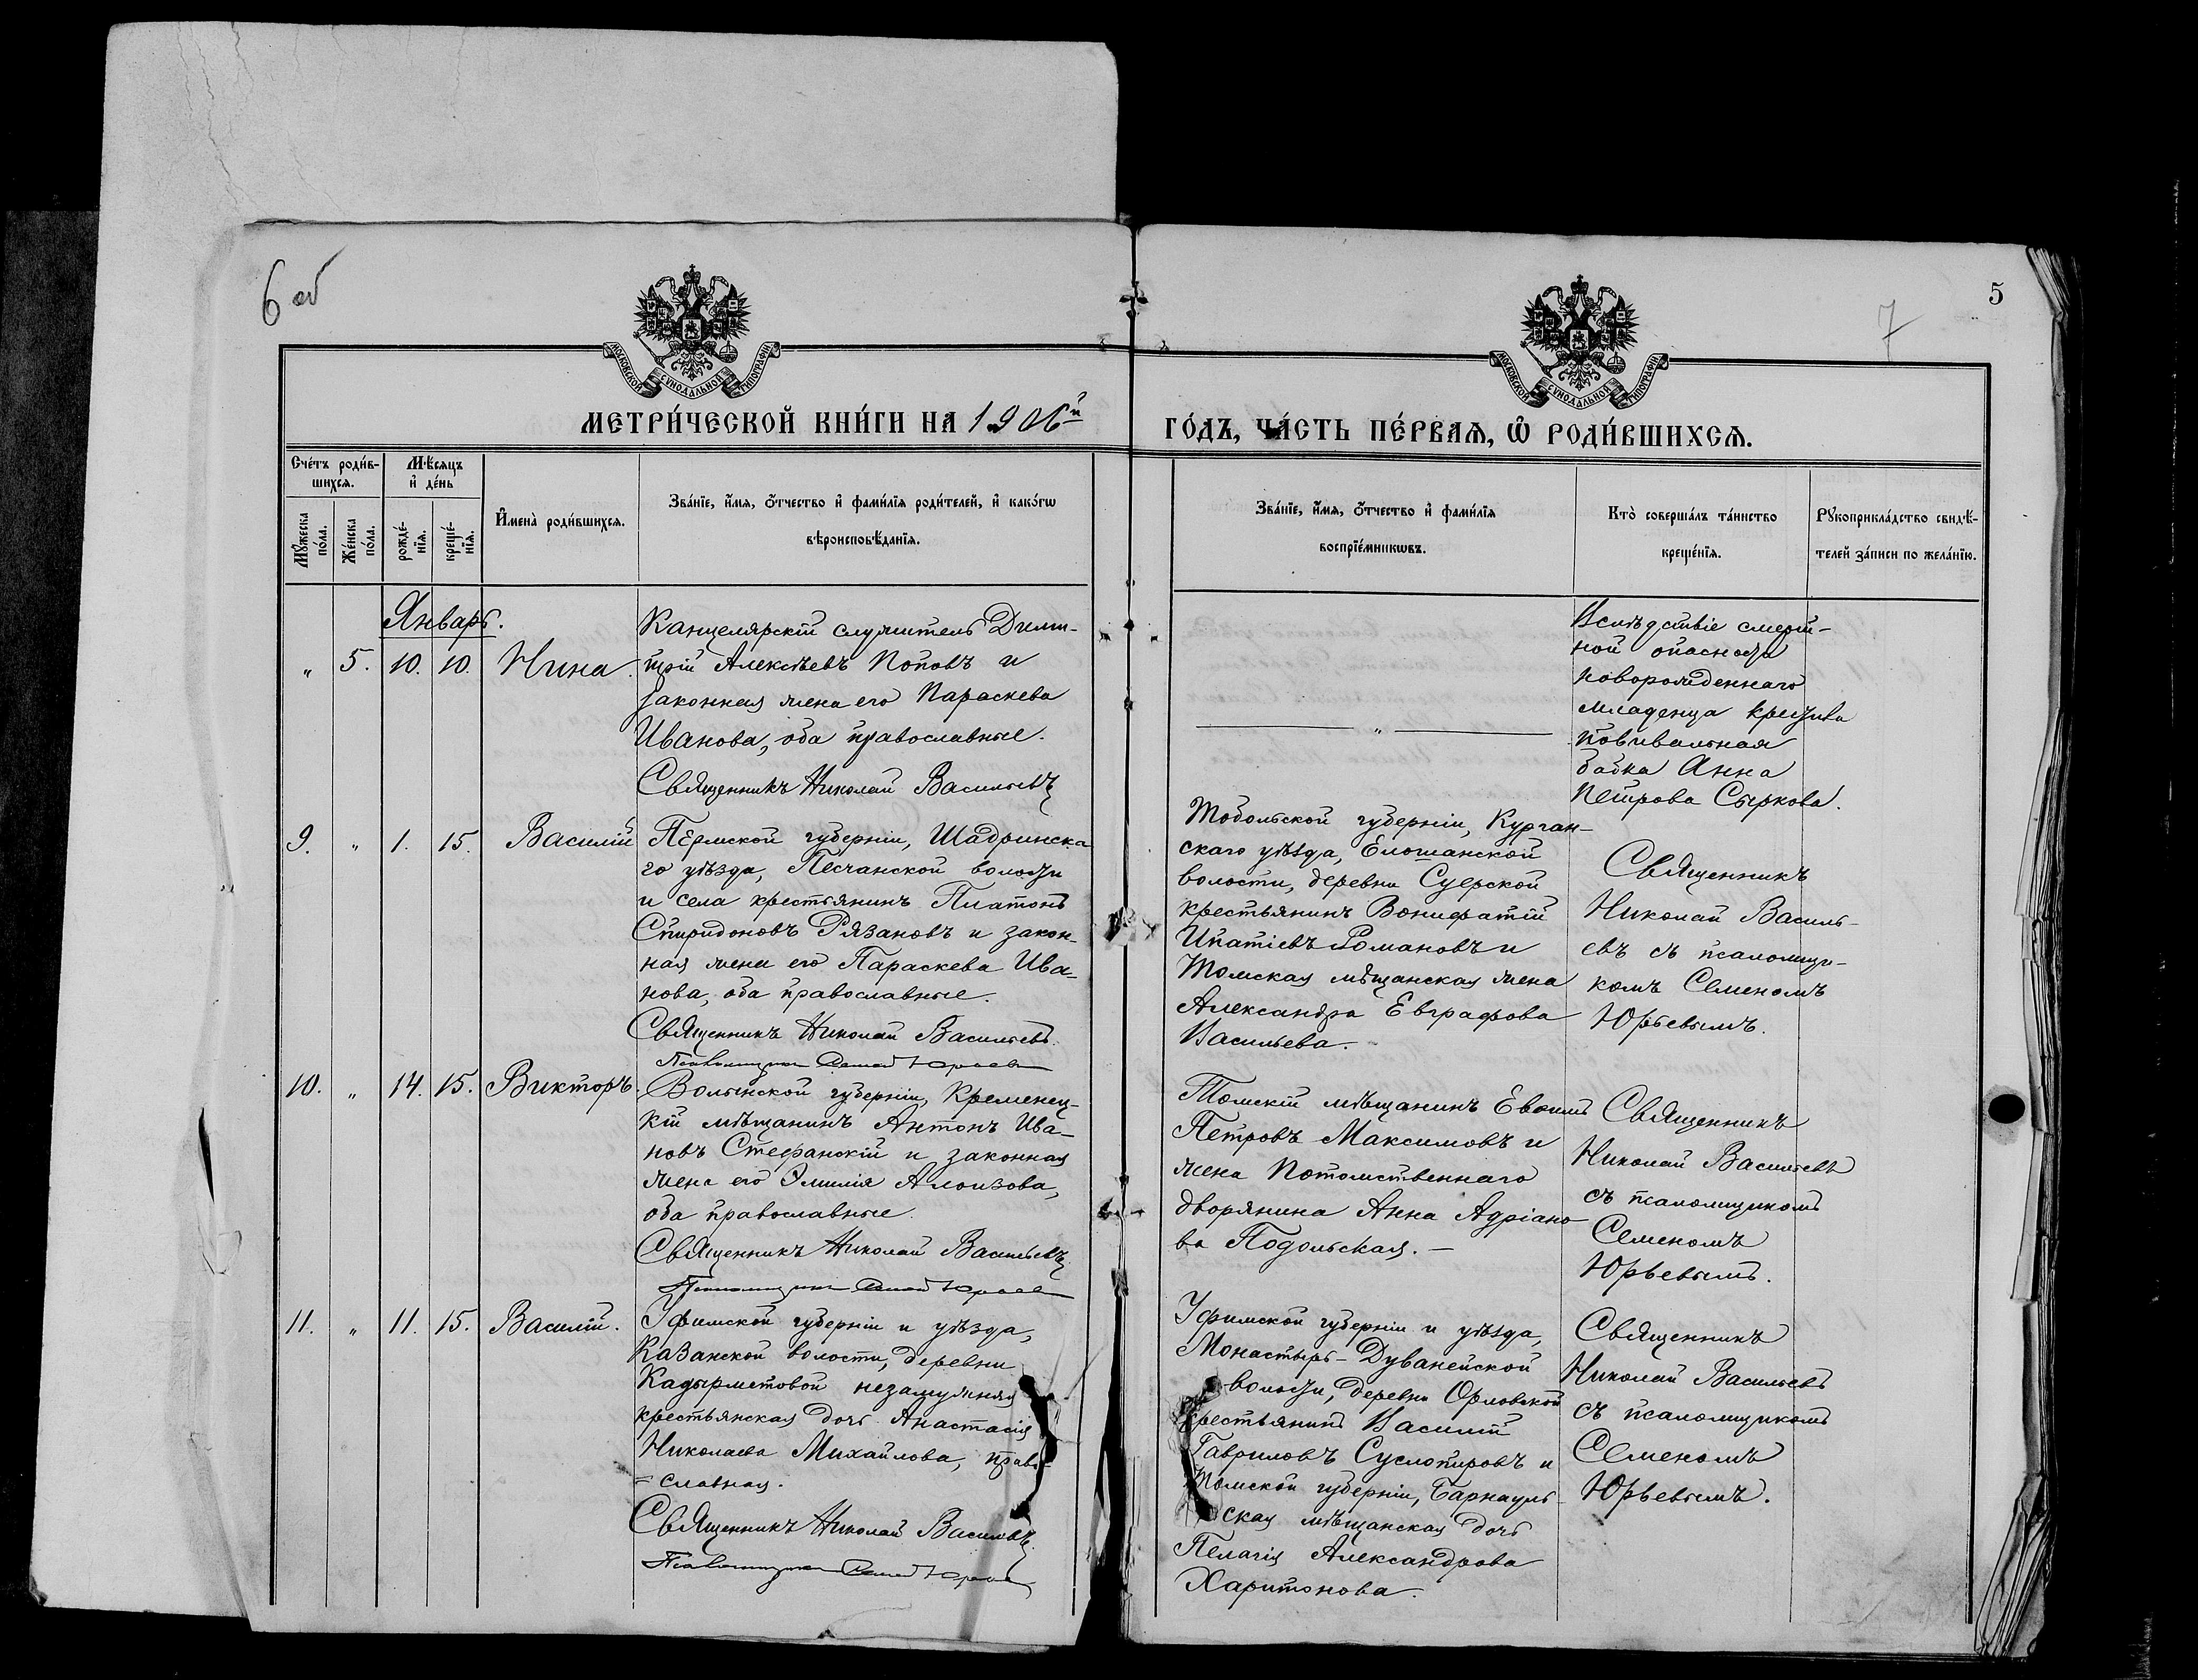 6 об
5
7
МОСКОВСКОЙ СУНОДАЛЬНОЙ ТИПОГРАФІИ
МОСКОВСКОЙ СУНОДАЛЬНОЙ ТИПОГРАФІИ
МЕТРИ́ЧЕСКОЙ КНИ́ГИ НА 1906й
ГО́ДЪ, ЧА́СТЬ ПЕ́РВАЯ, Ѡ РОДИ́ВШИХСЯ.
Сче́тъ роди́в-
шихся.
Мѣ́сяцъ
и де́нь
Мꙋ́жеска
по́ла.
Же́нска
по́ла.
рожде́-
нїя.
креще́-
нїя.
И҆мена̀ роди́вшихся.
Зва́нїе, и҆́мя, о҆́тчество и҆ фами́лїя роди́телей, и҆ како́гѡ
вѣроисповѣ́данїя.
Зва́нїе, и҆́мя, о҆́тчество и҆ фами́лїя
воспрїе́мникѡвъ.
Кто̀ соверша́лъ та́инство
креще́нїя.
Рꙋкоприкла́дство свидѣ́-
телей за́писи по жела́нїю.
Январь.
" 5. 10. 10. Нина.
Канцелярскій служитель Дими-
трій Алексѣевъ Поповъ и
законная жена его Параскева
Иванова, оба православные.
Священникъ Николай Васильевъ
"
Вслѣдствіе смерт-
ной опасности
новорожденнаго
младенца крестила
повивальная
бабка Анна
Петрова Сыркова.
9. " 1. 15. Василій
Пермской губерніи, Шадринска-
го уѣзда, Песчанской волости
и села крестьянинъ Платонъ
Спиридоновъ Рязановъ и закон-
ная жена его Параскева Ива-
нова, оба православные.
Священникъ Николай Васильевъ.
Псаломщикъ Семен Юрьев
Тобольской губерніи, Курган-
скаго уѣзда, Елошанской
волости, деревни Суерской
крестьянинъ Вонифатій
Ипатіевъ Романовъ и
Томская мѣщанская жена
Александра Евграфова
Васильева.
Священникъ
Николай Василь-
евъ съ псаломщи-
комъ Семеномъ
Юрьевымъ.
10. " 14. 15. Викторъ.
Волынской губерніи, Кременец-
кій мѣщанинъ Антонъ Ива-
новъ Стефанскій и законная
жена его Эмилія Алоизова,
оба православные.
Священникъ Николай Васильевъ
Псаломщикъ Семен Юрьев
Томскій мѣщанинъ Евфимъ
Петровъ Максимовъ и
жена потомственнаго
дворянина Анна Адріано-
ва Подольская. —
Священникъ
Николай Васильевъ
съ псаломщикомъ
Семеномъ
Юрьевымъ.
11. " 11. 15. Василій.
Уфимской губерніи и уѣзда,
Казанской волости, деревни
Кадырметовой незамужняя
крестьянская дочь Анастасія
Николаева Михайлова, право-
славная.
Священникъ Николай Васильевъ
Псаломщикъ Семен Юрьев
Уфимской губерніи и уѣзда,
Монастырь-Дуванейской
волости, деревни Орловской
крестьянинъ Василій
Гавриловъ Суслопировъ и
Томской губерніи, Барнауль-
ская мѣщанская дочь
Пелагія Александрова
Харитонова.
Священникъ
Николай Васильевъ
съ псаломщикомъ
Семеномъ
Юрьевымъ.